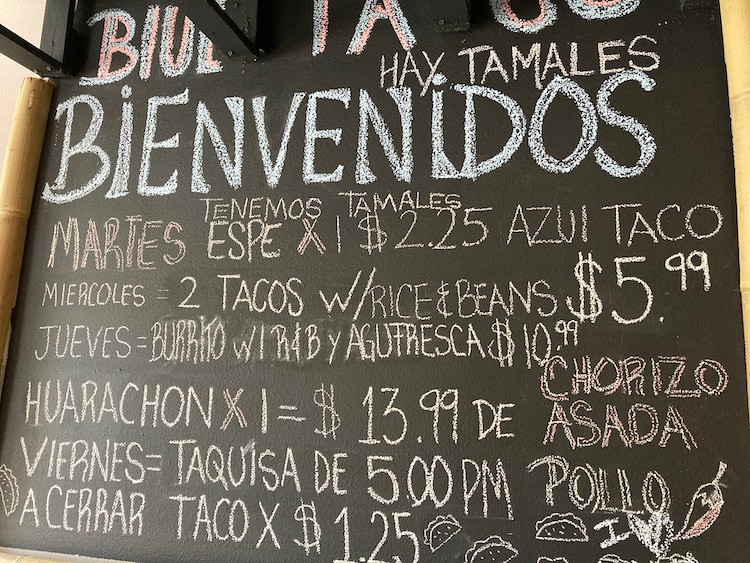 HAY TAMALES
BIENVENIDOS
TENEMOS TAMALES
MARTES ESPE X 1 $2.25 AZUL TACO
MIERCOLES = 2 TACOS W/RICE & BEANS $5.99
JUEVES = BURRITO W/ R&B Y AGUFRESCA $10.99
HUARACHON X 1 = $13.99 DE CHORIZO
ASADA
VIERNES = TAQUISA DE 5.00 PM POLLO
A CERRAR TACO X $1.25
I